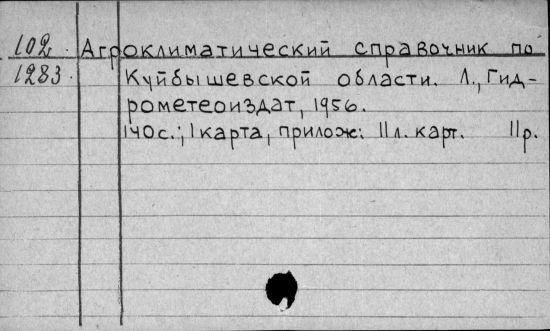 102 Агроклиматический справочник по
1283 Куйбышевской области. Л., Гид-
рометеоиздат, 1956.
140с.; 1 карта, прилож: 11л. карт. 11р.